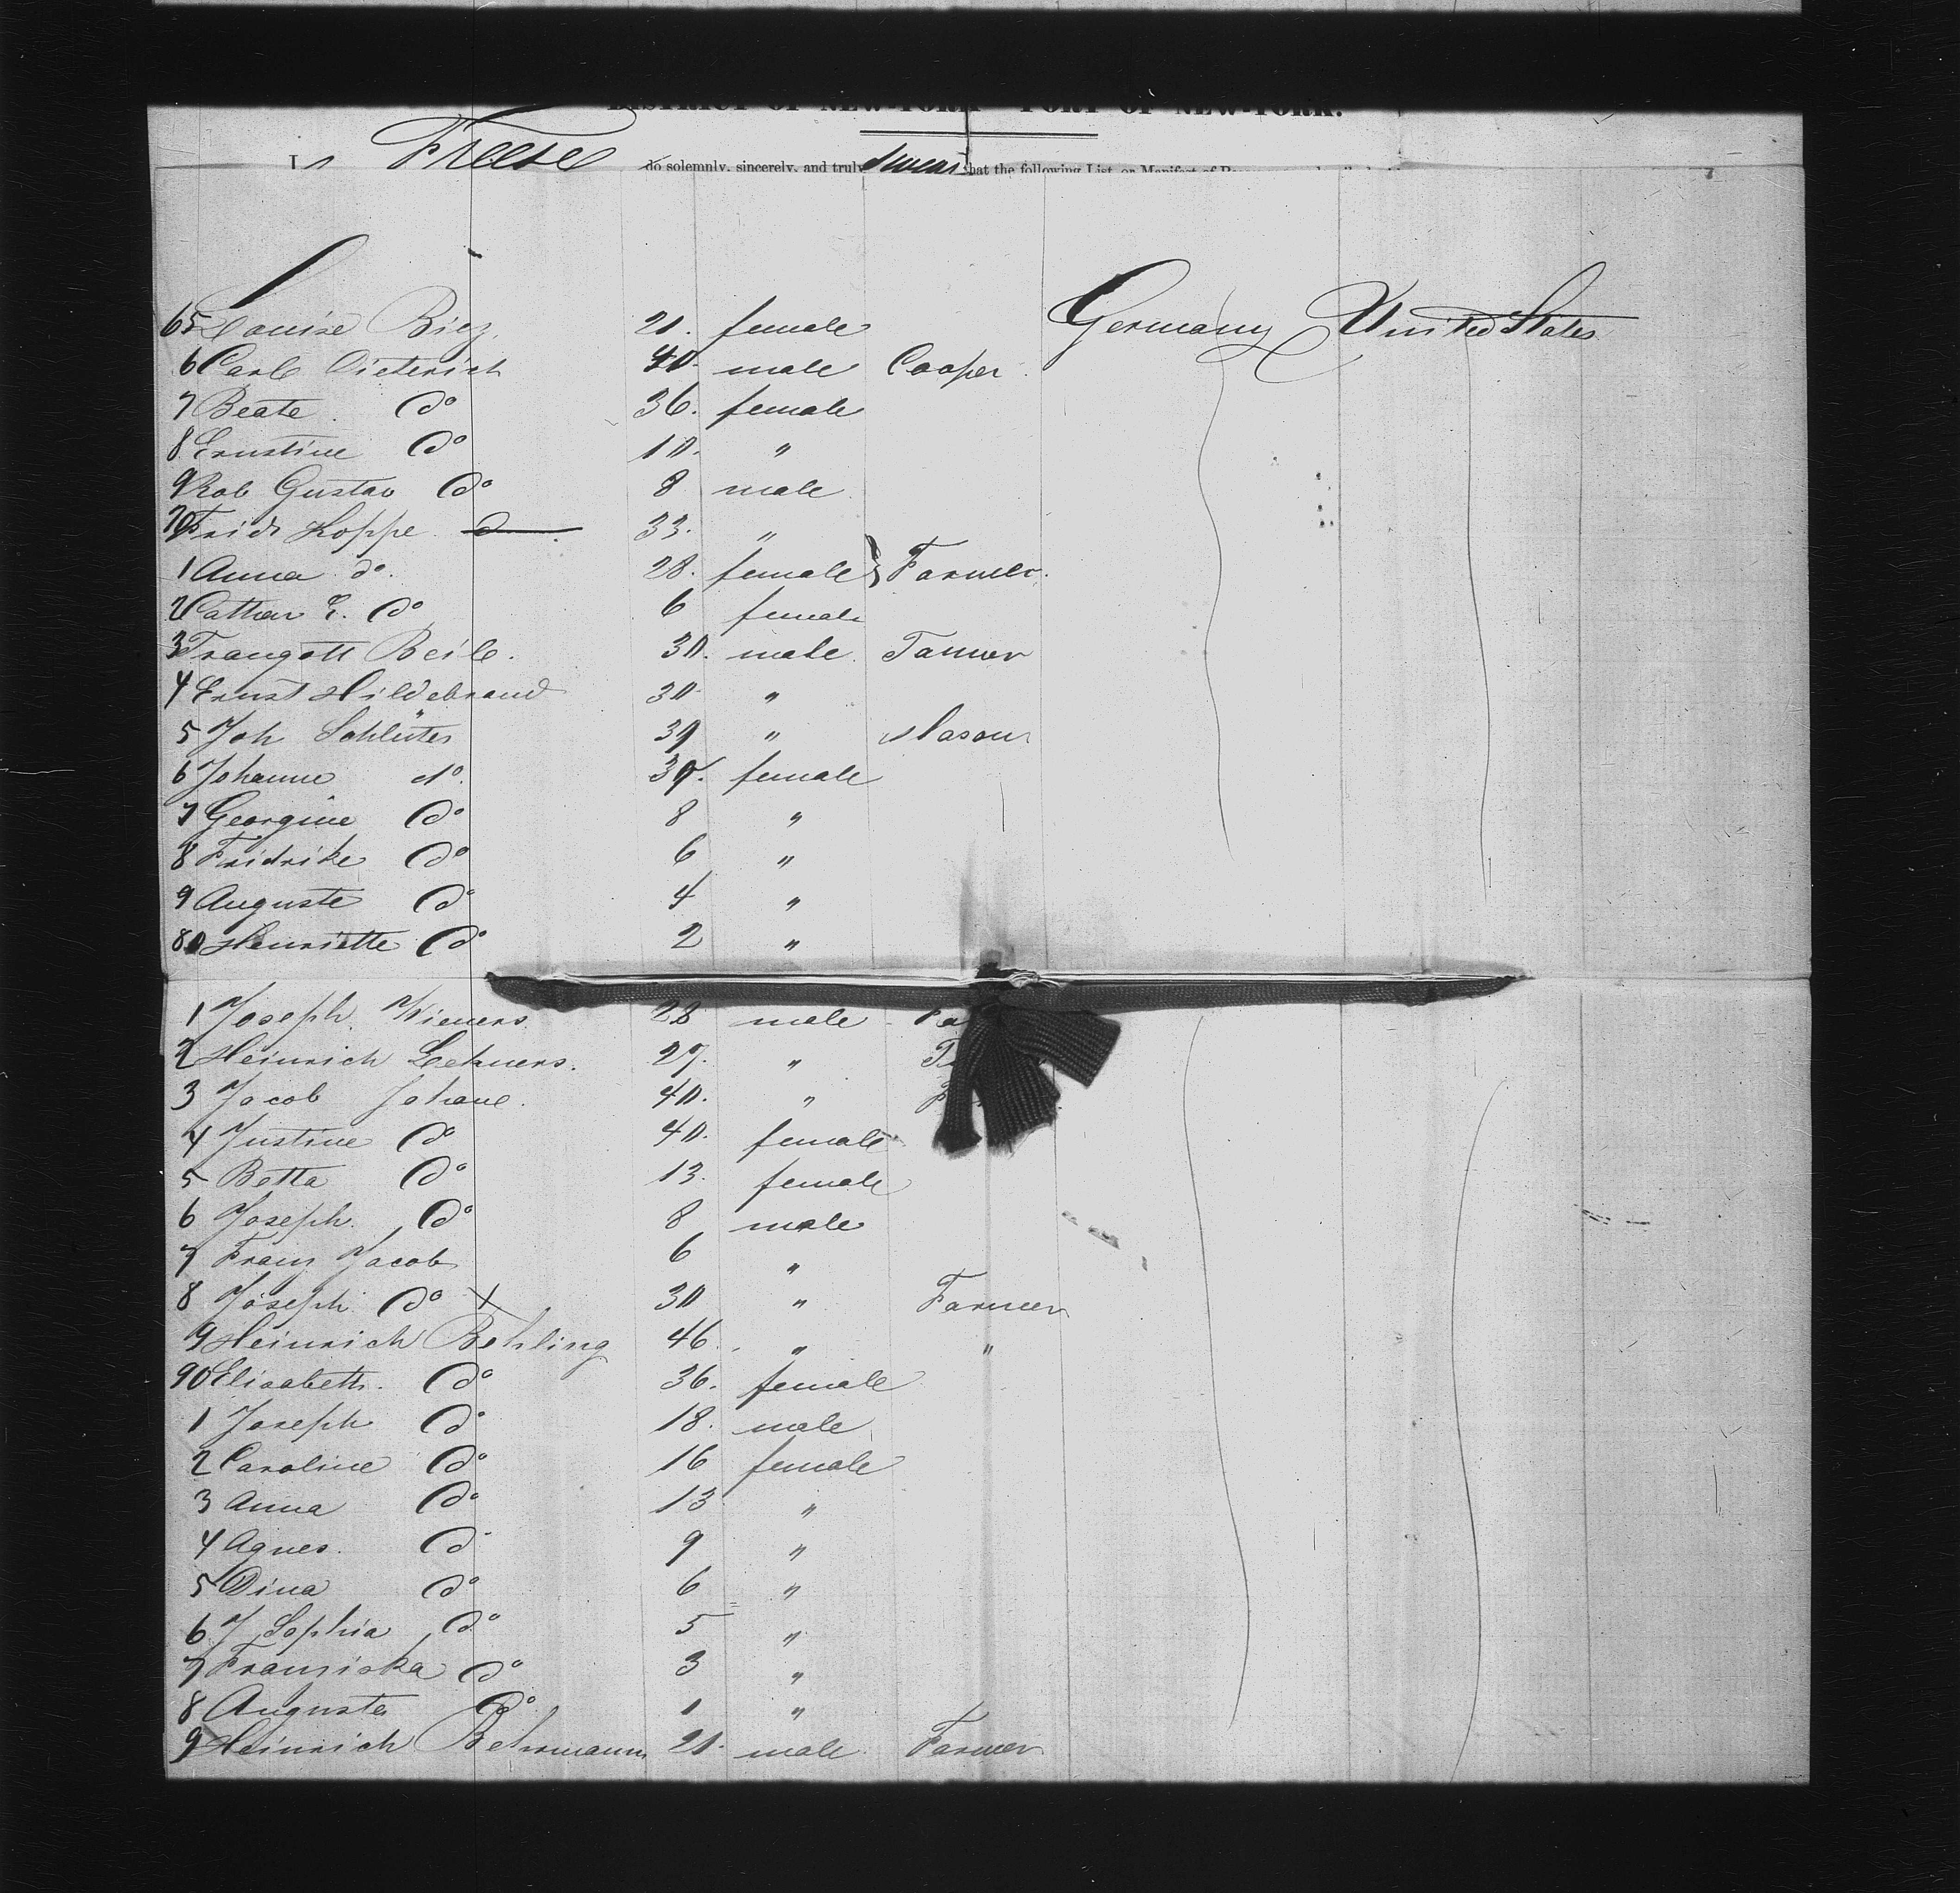 DISTRICT OF NEW-YORK PORT OF NEW-YORK.
I, Freese do solemnly, sincerely, and truly swear that the following List or Manifest of
65 Louise Biez 21. female Germany United States
6 Carl Dieterich 40. male Cooper
7 Beate do 36. female
8 Ernstine do 10. "
9 Rob Gustav do 8 male
70 Fridr Koppe. 33. "
1 Anna do. 28. female } Farmer.
2 Cathar E. do 6 female
3 Traugott Beile. 30. male. Tanner
4 Ernst Hildebrand 30. "
5 Joh Schlüter 39 " Mason
6 Johanne do. 39. female
7 Georgine do 8 "
8 Fridrike do 6 "
9 Auguste do 4 "
80 Henriette do 2 "
1 Joseph Wieners 28 male Fa
2 Heinrich Lehners. 27. "
3 Jacob Johane. 40. "
4 Justine do 40. female
5 Betta do 13. female
6 Joseph. do 8 male
7 Franz Jacob 6 "
8 Joseph do X 30 " Farmer
9 Heinrich Behling 46. " "
90 Elisabeth. do 36. female
1 Joseph do 18. male
2 Caroline do 16 female
3 Anna do 13 "
4 Agnes. do 9 "
5 Dina do 6 "
6 J Sophia do 5 "
7 Franziska do 3 "
8 Auguste do 1 "
9 Heinrich Behrmann 21. male Farmer